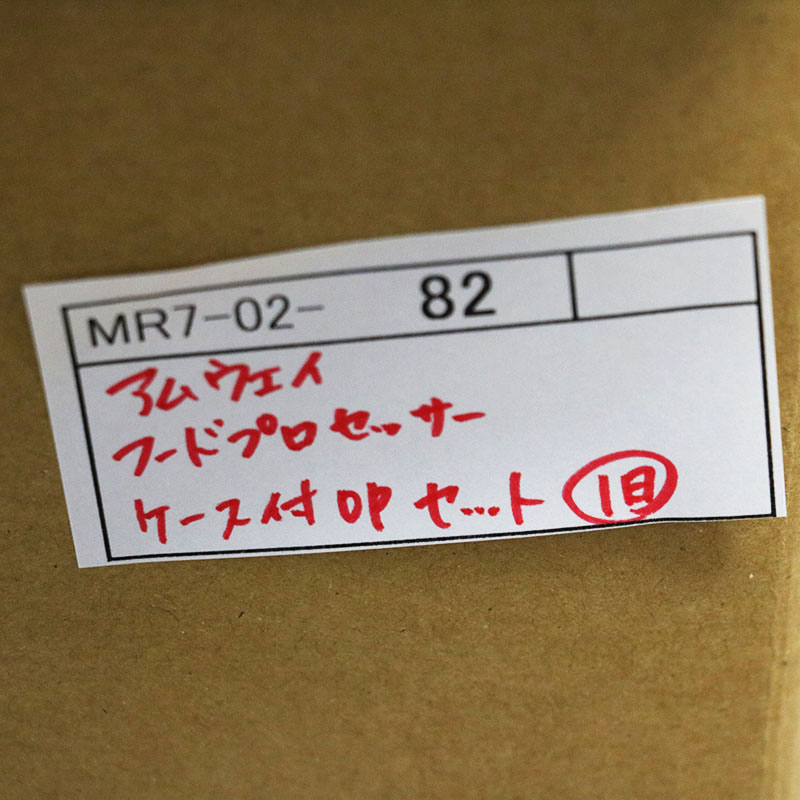 MR7-02- 82
アムウェイ
フードプロセッサー
ケース付 OP セット 旧